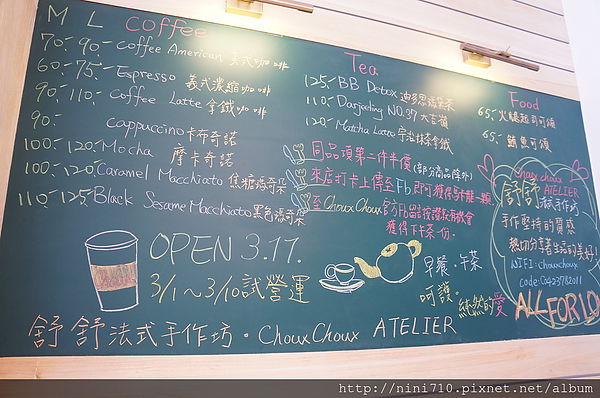 M L coffee
70.- 90.- coffee American 美式咖啡
60.- 75.- Espresso 義式濃縮咖啡
90.- 110.- Coffee Latte 拿鐵咖啡
90.- cappuccino 卡布奇諾
100.- 120.- Mocha 摩卡奇諾
100.- 120.- Caramel Macchiato 焦糖瑪奇朵
110.- 125.- Black Sesame Macchiato 黑色瑪奇朵
Tea
125.- BB Detox
110.- Darjeeling NO.37 大吉嶺
120.- Matcha Latte 宇治抹茶拿鐵
Food
65.- 火腿起司可頌
65.- 鮪魚可頌
同品項第二件半價(部分商品除外)
來店打卡上傳至Fb即可獲得
至Choux Choux官方Fb
獲得下午茶一份.
choux choux
ATELIER
舒舒 手作坊
手作堅持的質感
熱切分享著生活的美好!
WIFI: chouxchoux
code: 0423782011
ALL FOR LO
OPEN 3.17.
3/1~3/10 試營運
早餐.午茶
呵護. 的愛
舒舒法式手作坊。Choux Choux ATELIER
http://nini710.pixnet.net/album